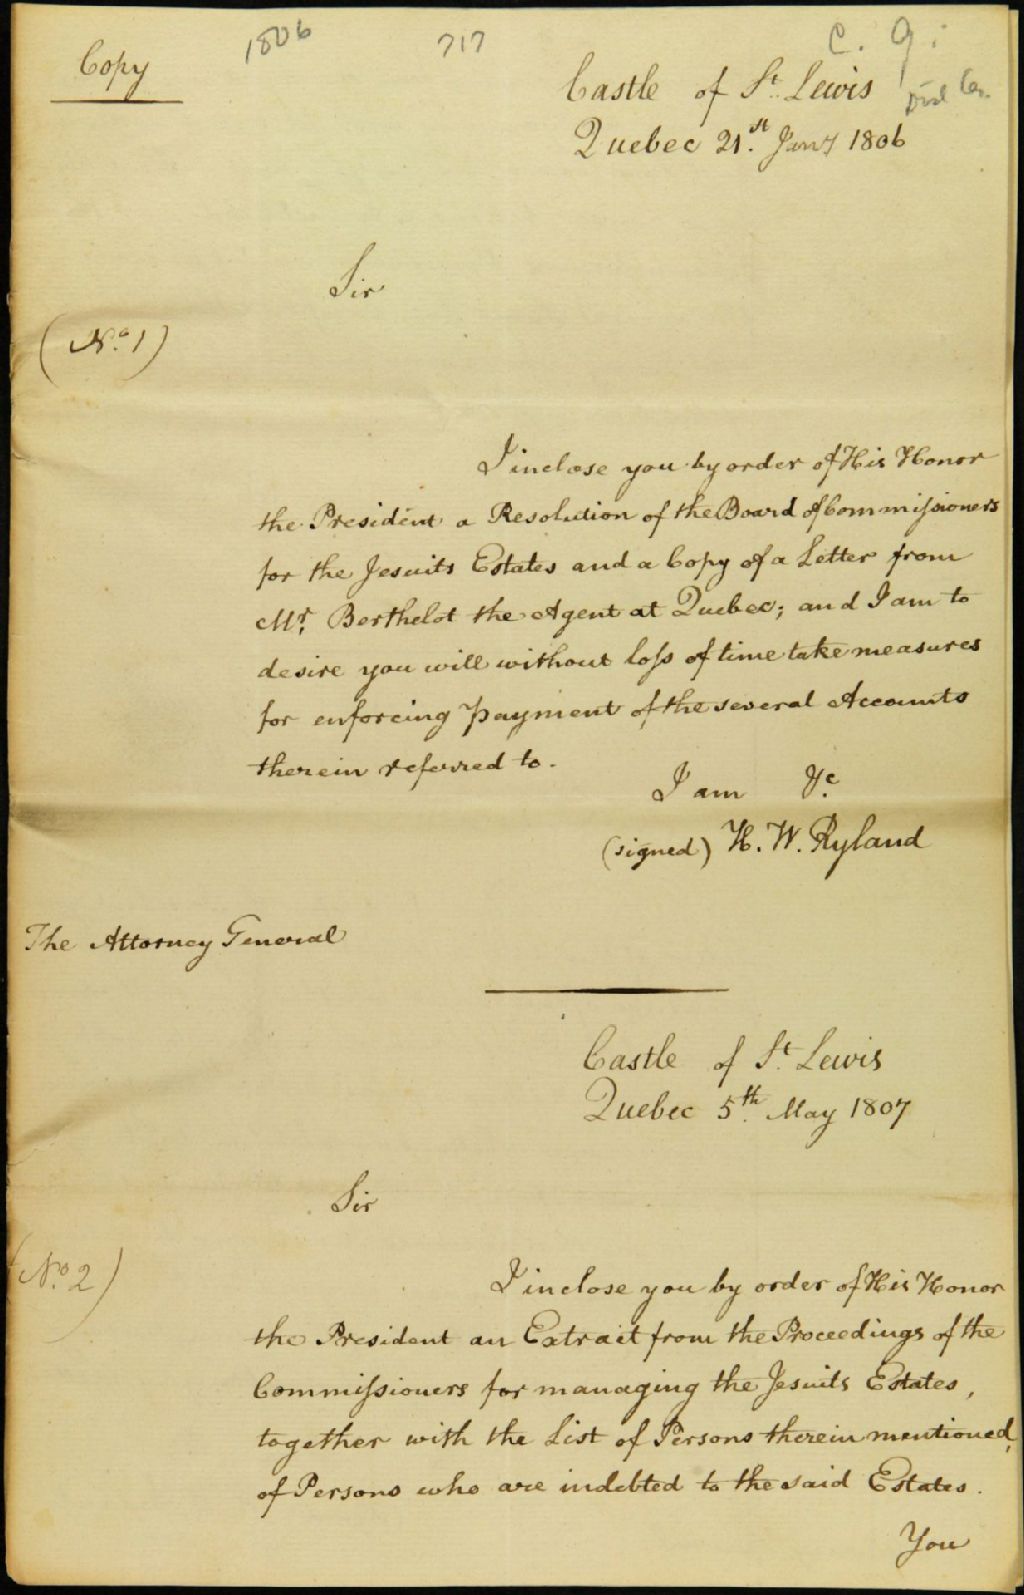 Copy
1806
717
C. G.
Castle of St. Lewis
Quebec 21.st Jany 1806
Sir
(No. 1)
I inclose you by order of His Honor
the President a Resolution of the Board of Commissioners
for the Jesuits Estates and a Copy of a Letter from
Mr. Berthelot the Agent at Quebec; and I am to
desire you will without loss of time take measures
for enforcing payment of the several Accounts
therein referred to.
I am &c.
(signed) H. W. Ryland
The Attorney General
Castle of St. Lewis
Quebec 5th. May 1807
Sir
(No. 2)
I inclose you by order of His Honor
the President an Extrait from the Proceedings of the
Commissioners for managing the Jesuits Estates,
together with the List of Persons therein mentioned,
of Persons who are indebted to the said Estates.
You